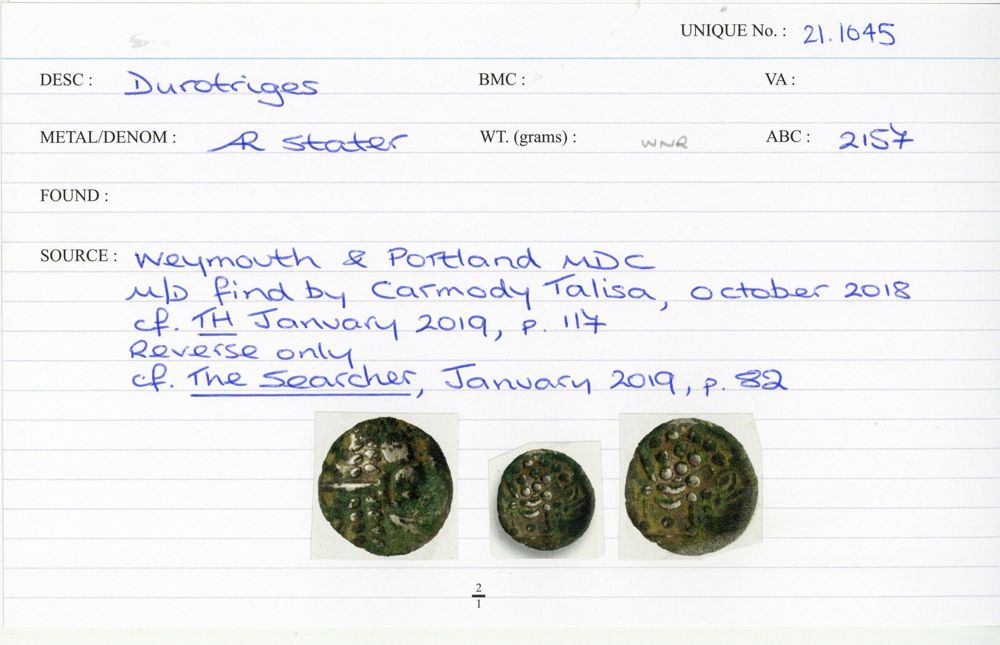 UNIQUE No. : 21.1645
DESC : Durotriges BMC : VA :
METAL/DENOM : AR stater WT. (grams) : WNR ABC : 2157
FOUND :
SOURCE : Weymouth & Portland MDC
M/D find by Carmody Talisa, October 2018
cf. TH January 2019, p. 117
Reverse only
cf. The Searcher, January 2019, p. 82
2
1